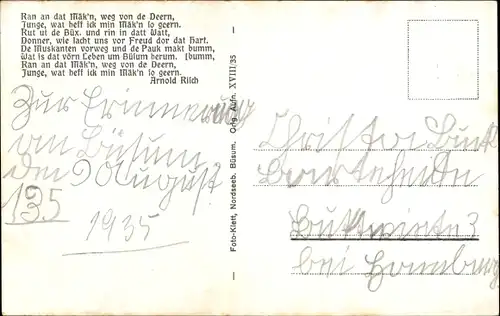 Ran an dat Mäk'n, weg von de Deern,
Junge, wat heff ick min Mäk'n so geern.
Rut ut de Büx. und rin in datt Watt,
Donner, wie lacht uns vor Freud dor dat Hart.
De Muskanten vorweg und de Pauk makt bumm,
Wat is dat vörn Leben um Büsum herum. [bumm,
Ran an dat Mäk'n, weg von de Deern,
Junge, wat heff ick min Mäk'n so geern.
Arnold Risch
Zur Erinnerung
an Büsum
den 9 August
135
1935
Foto-Klett, Nordseeb. Büsum. Orig. Aufn. XVIII/35
Christa
bei Homburg